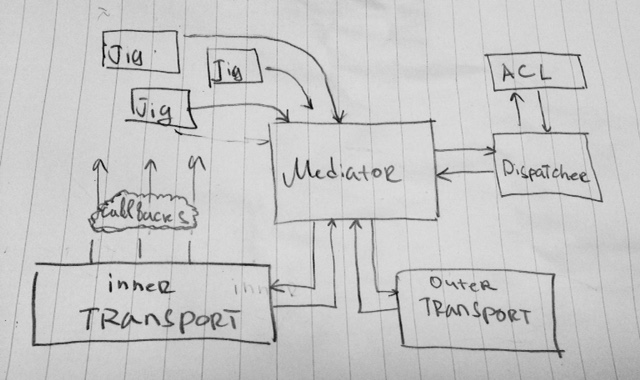 Jig
Jig
Jig
ACL
Mediator
Dispatcher
callbacks
inner
TRANSPORT
outer
TRANSPORT